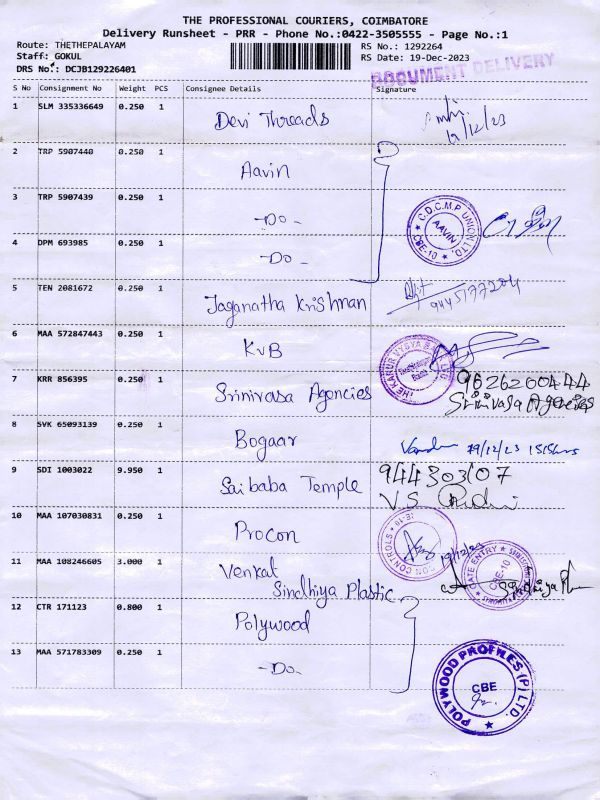 THE PROFESSIONAL COURIERS, COIMBATORE
Delivery Runsheet - PRR - Phone No.:0422-3505555 - Page No.:1
Route: THETHEPALAYAM
RS No.: 1292264
Staff: GOKUL
RS Date: 19-Dec-2023
DRS No.: DCJB129226401
DOCUMENT DELIVERY
S No Consignment No Weight PCS Consignee Details Signature
1 SLM 335336649 0.250 1 Devi Threads
19/12/23
2 TRP 5907440 0.250 1 Aavin
3 TRP 5907439 0.250 1 -Do-
C.D.C.M.P UNION LTD. AAVIN CBE-10
4 DPM 693985 0.250 1 -Do-
5 TEN 2081672 0.250 1 Jaganatha Krishnan
6 MAA 572847443 0.250 1 KVB
THE KARUR VYSYA BANK LTD
7 KRR 856395 0.250 1 Srinivasa Agencies
9626200444
Srinivasa Agencies
8 SVK 65093139 0.250 1 Bogaar
19/12/23
9 SDI 1003022 9.950 1 Saibaba Temple
944303107
10 MAA 107030831 0.250 1 Procon
CON CONTROLS
19/12/23
11 MAA 108246605 3.000 1 Venkat
Sindhiya Plastic
GATE ENTRY CBE-10
12 CTR 171123 0.800 1 Polywood
13 MAA 571783309 0.250 1 -Do-
POLYWOOD PROFILES (P) LTD. CBE